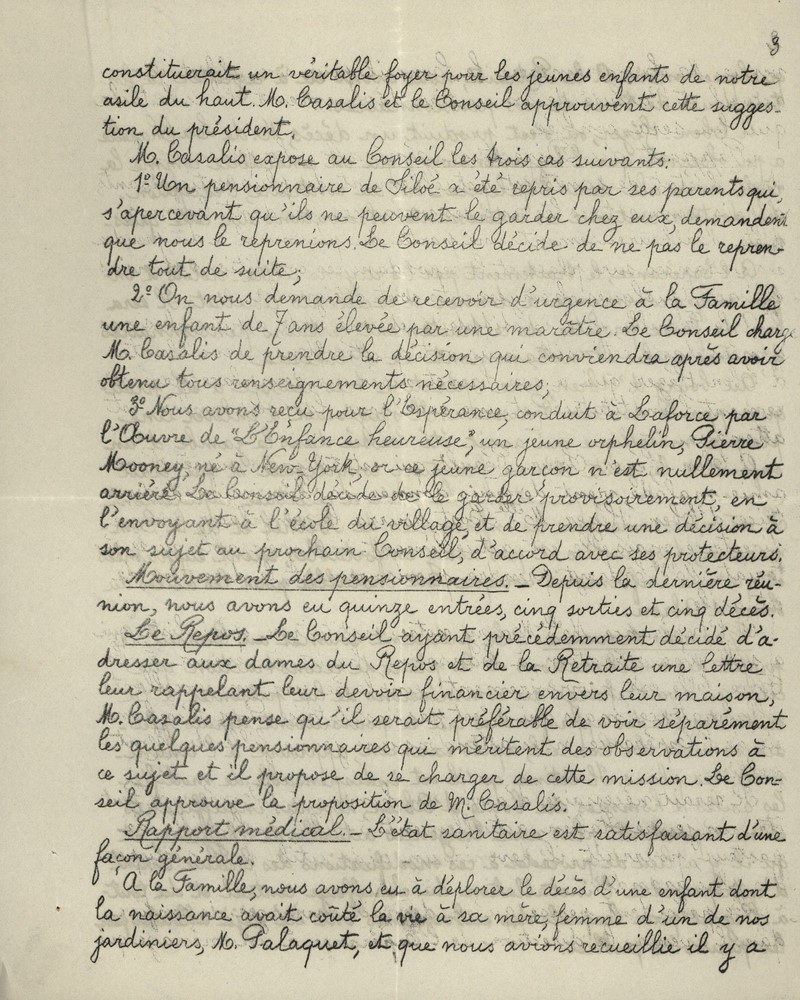 3
constituerait un véritable foyer pour les jeunes enfants de notre
asile du haut. M. Casalis et le Conseil approuvent cette sugges-
tion du président.
M. Casalis expose au Conseil les trois cas suivants:
1º Un pensionnaire de Siloé a été repris par ses parents qui,
s'apercevant qu'ils ne peuvent le garder chez eux, demandent
que nous le reprenions. Le Conseil décide de ne pas le repren-
dre tout de suite;
2º On nous demande de recevoir d'urgence à la Famille
une enfant de 7 ans élevée par une marâtre. Le Conseil charge
M. Casalis de prendre la décision qui conviendra après avoir
obtenu tous renseignements nécessaires;
3º Nous avons reçu pour l'Espérance, conduit à Laforce par
l'Œuvre de "L'Enfance heureuse", un jeune orphelin, Pierre
Mooney, né à New-York, or ce jeune garçon n'est nullement
arriéré. Le Conseil décide de le garder provisoirement, en
l'envoyant à l'école du village, et de prendre une décision à
son sujet au prochain Conseil, d'accord avec ses protecteurs.
Mouvement des pensionnaires. - Depuis la dernière réu-
nion, nous avons eu quinze entrées, cinq sorties et cinq décès.
Le Repos. - Le Conseil ayant précédemment décidé d'a-
dresser aux dames du Repos et de la Retraite une lettre
leur rappelant leur devoir financier envers leur maison,
M. Casalis pense qu'il serait préférable de voir séparément
les quelques pensionnaires qui méritent des observations à
ce sujet et il propose de se charger de cette mission. Le Con-
seil approuve la proposition de M. Casalis.
Rapport médical. - L'état sanitaire est satisfaisant d'une
façon générale.
A la Famille, nous avons eu à déplorer le décès d'une enfant dont
la naissance avait coûté la vie à sa mère, femme d'un de nos
jardiniers, M. Palaquet, et que nous avions recueillie il y a